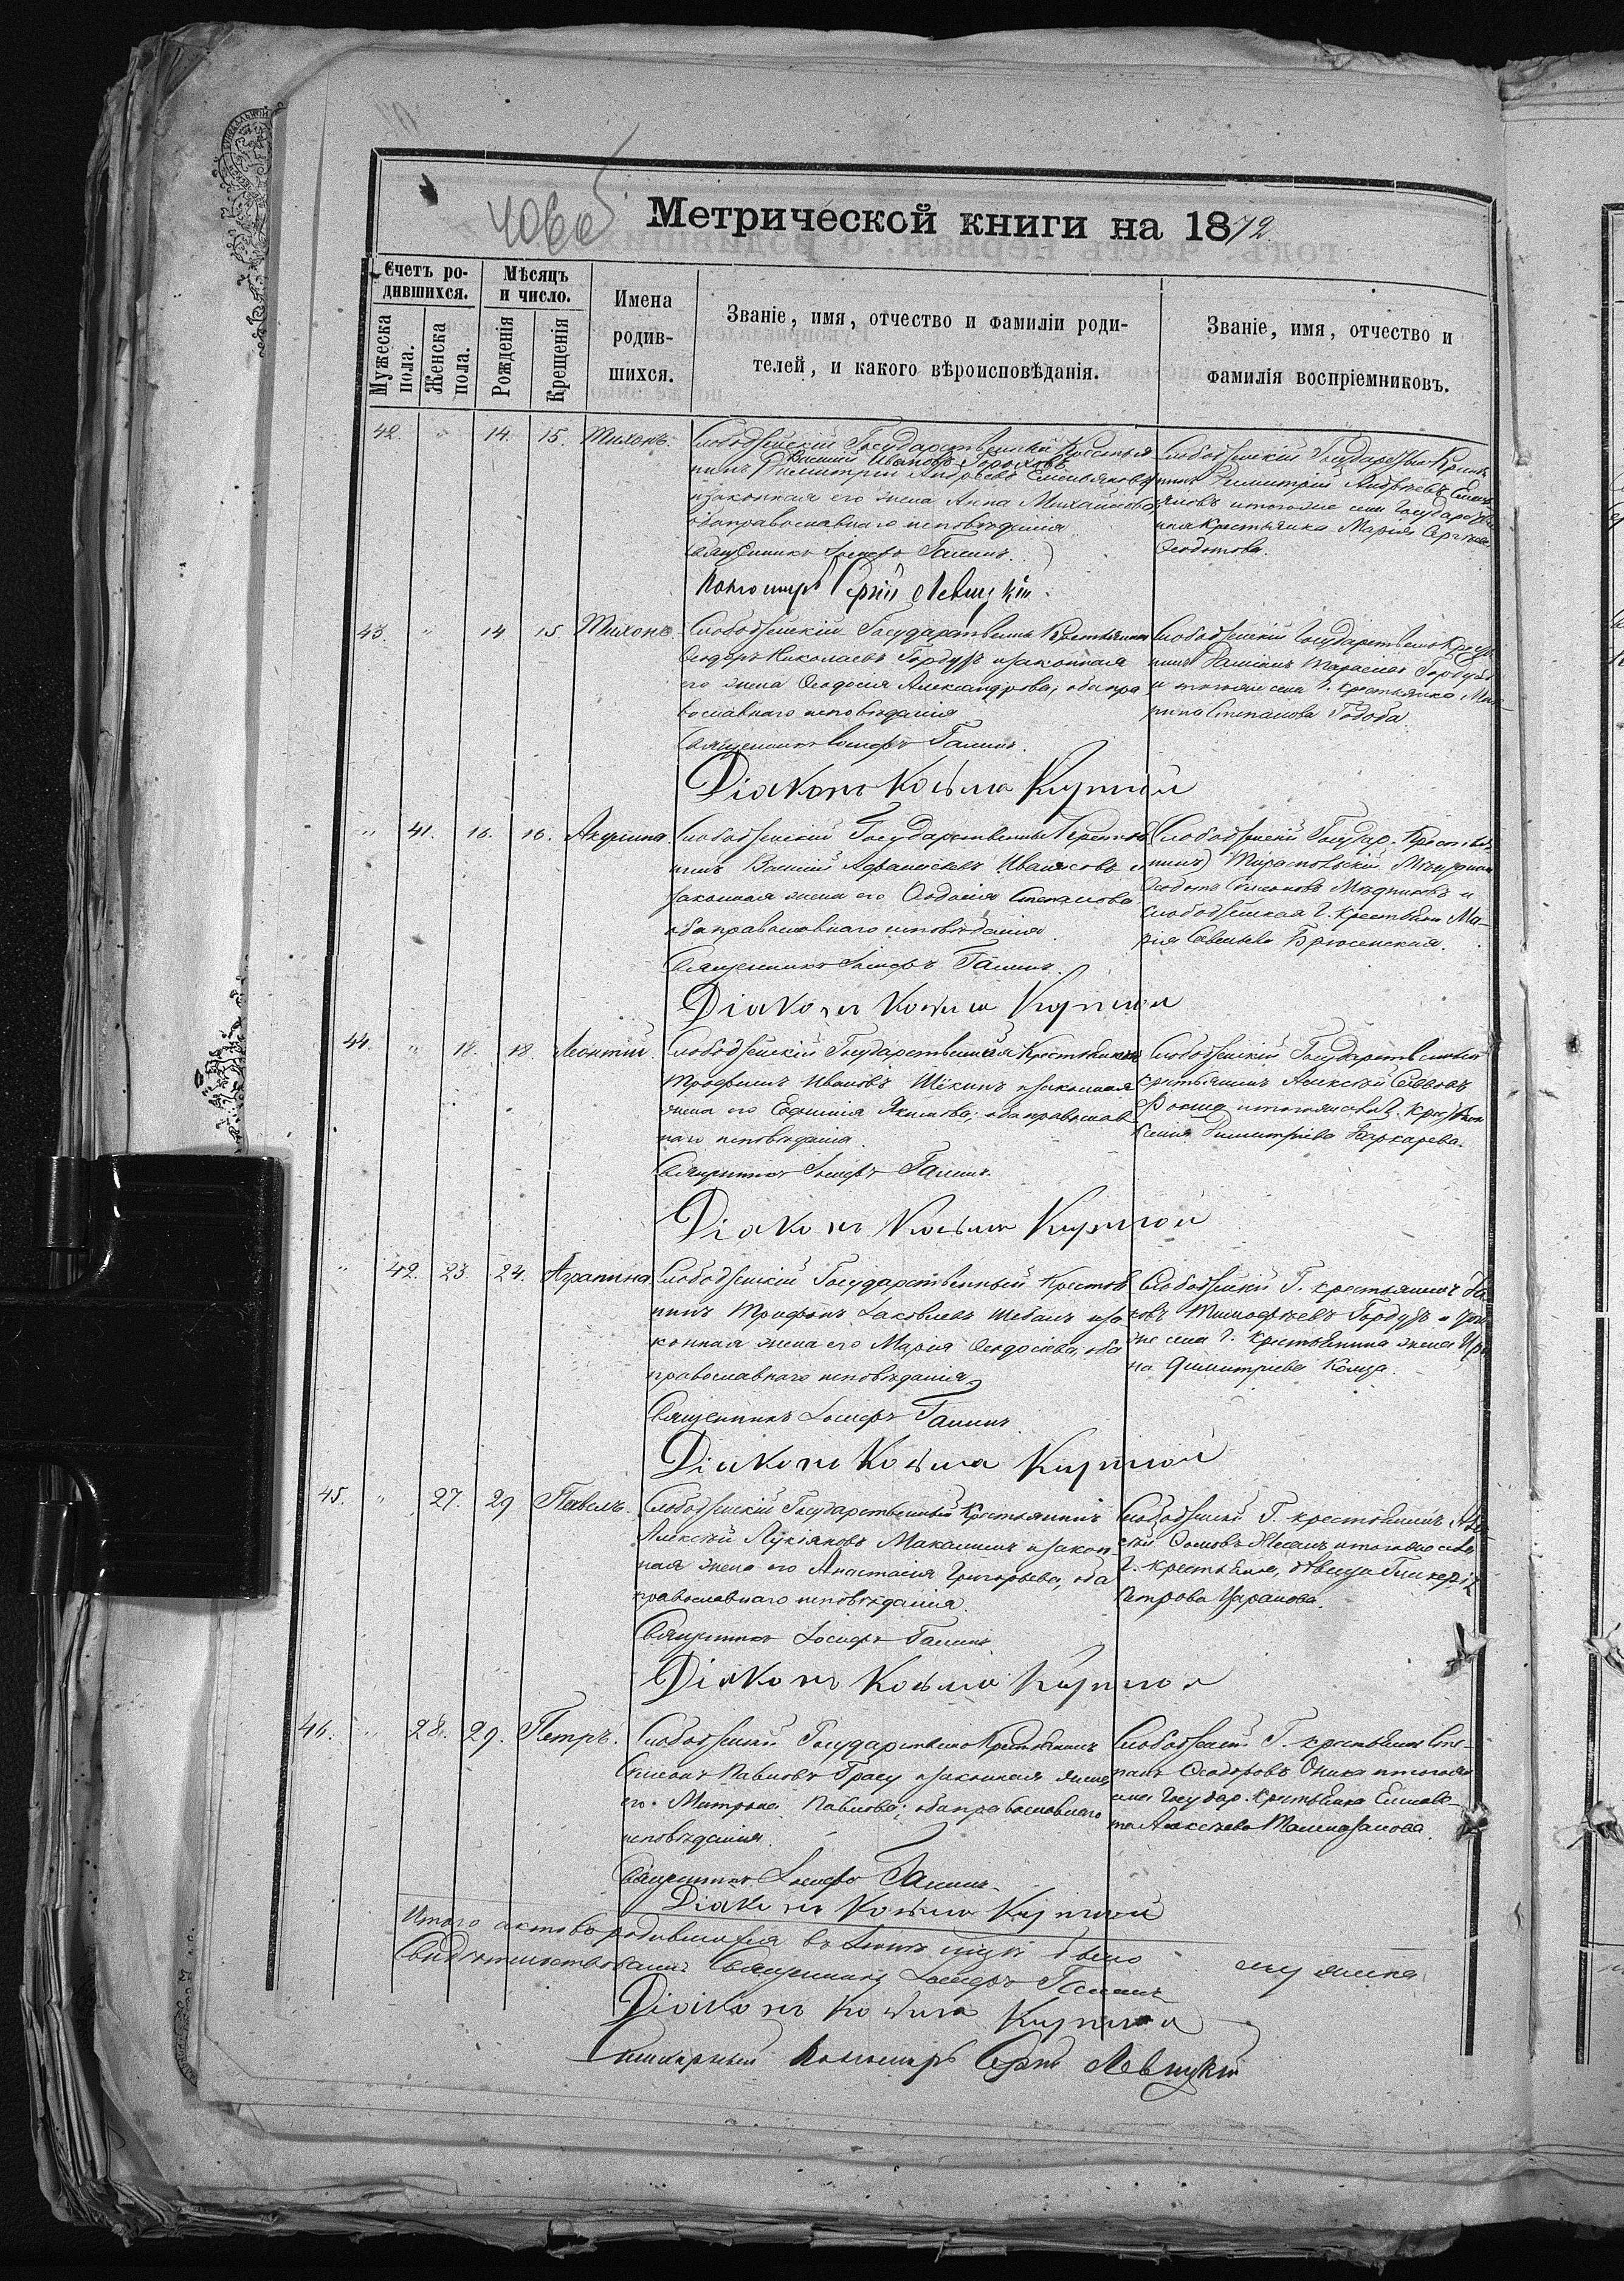 406об
Метрической книги на 1872
Счетъ ро-
дившихся.
Мѣсяцъ
и число.
Мужеска
пола.
Женска
пола.
Рожденія
Крещенія
Имена
родив-
шихся.
Званіе, имя, отчество и фамиліи роди-
телей, и какого вѣроисповѣданія.
Званіе, имя, отчество и
фамилія воспріемниковъ.
42. " 14. 15. Тихонъ.
Слободзейскій Государственный Крестья
Василий Ивановъ
нинъ Димитрій Андреевъ Емельяновъ
и законная его жена Анна Михайлова,
оба православнаго исповѣданія
Священникъ Іосифъ Галинъ.
Пономарь Сергій Левицкій.
Слободзейскій Государствен Крестья
нинъ Димитрій Андреевъ Емель
яновъ и того же села Государстве
ная Крестьянка Марія Сергѣева
Ѳедотова.
43. " 14 15. Тихонъ.
Слободзейскій Государственны Крестьянинъ
Ѳеодоръ Николаевъ Гордузъ и законная
его жена Ѳеодосія Александрова, оба пра
вославнаго исповѣданія
Священникъ Іосифъ Галинъ.
Діаконъ Косьма Купчой
Слободзейскій Государственно Кресть
нинъ Тарасіевъ Гордузъ
и того же села Г. крестьянка Ма-
рина Степанова
" 41. 16. 16. Акулина.
Слободзейскій Государственны Крестья
нинъ Василій Аѳанасьевъ Ивансовъ и
законная жена его Степанова
оба православнаго исповѣданія
Священникъ Іосифъ Галинъ.
Діаконъ Косьма Купчой
Слободзейскій Государ. Крестья
нинъ) Тираспольскій Мѣщанинъ
Ѳеодотъ Мѣдниковъ и
слободзейская Г. крестьян Ма-
рія Савельева Брюсенская.
44. " 18. 18. Леонтій.
Слободзейскій Государственный Крестьянинъ
Трофимъ Ивановъ Щукинъ и законная
жена его Евфимія Якимова; оба православ
наго исповѣданія.
Священникъ Іосифъ Галинъ.
Діаконъ Косьма Купчой
Слободзейскій Государственный
крестьянинъ Алексѣй Савовъ
и того же села Г. Крестьян
Ксенія Димитріева Каркарева.
" 42. 23. 24. Агапина
Слободзейскій Государственный Крестья
нинъ Трифонъ Іаковлевъ Шебанъ и за
конная жена его Марія Ѳеодосіева, оба
православнаго исповѣданія
Священникъ Іосифъ Галинъ
Діаконъ Косьма Купчой
Слободзейскій Г. крестьянинъ Іа
ковъ Тимофѣевъ Гордузъ и того
же села Г. Крестьянина жена Ири
на Димитріева Коица.
45. " 27. 29 Павелъ.
Слободзейскій Государственный Крестьянинъ
Алексѣй Лукіяновъ Макалишъ и закон
ная жена его Анастасія Григорьева, оба
православнаго исповѣданія.
Священникъ Іосифъ Галинъ
Діаконъ Косьма Купчой
Слободзейскій Г. крестьянинъ
и того же села
Г. крестьянка, дѣвица Гликерія
Петрова Царанова.
46. " 28. 29. Петръ.
Слободзейскій Государственно Крестьянинъ
Симеонъ Павловъ Грасу и законная жена
его Матрона Павлова; оба православнаго
исповѣданія.
Священникъ Іосифъ Галинъ
Діаконъ Косьма Купчой
Слободзейскій Г. крестьянинъ Сте-
панъ Ѳеодоровъ Оника и того же
села Государ. Крестьянка Елисаве-
та Алексѣева
Итого актовъ родившихся въ Іюнѣ мѣсяцѣ было
Свидѣтельствовали: Священникъ Іосифъ Галинъ
Діаконъ Косьма Купчой
Пономарь Сергій Левицкій